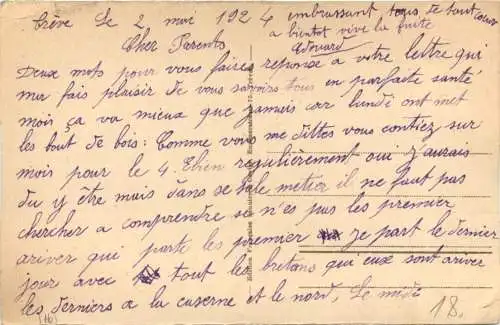 Trêve Le 2 mai 1924 embrassant tous de tout coeur
a bientot vive la fuite
Cher Parents Edouard
Deux mots pour vous faires reponse a votre lettre qui
mur fais plaisir de vous savoirs tous en parfaite santé
mois ça va mieux que jamais car lundi ont met
les bout de bois: Comme vous me dittes vous contiez sur
mois pour le 4. regulièrement oui j'aurais
du y être mais dans se sale metier il ne faut pas
chercher a comprendre se n'es pas les premier
ariver qui parte les premier je part le dernier
jour avec tout les bretons qui eux sont ariver
les derniers a la caserne et le nord. Le midi
18.